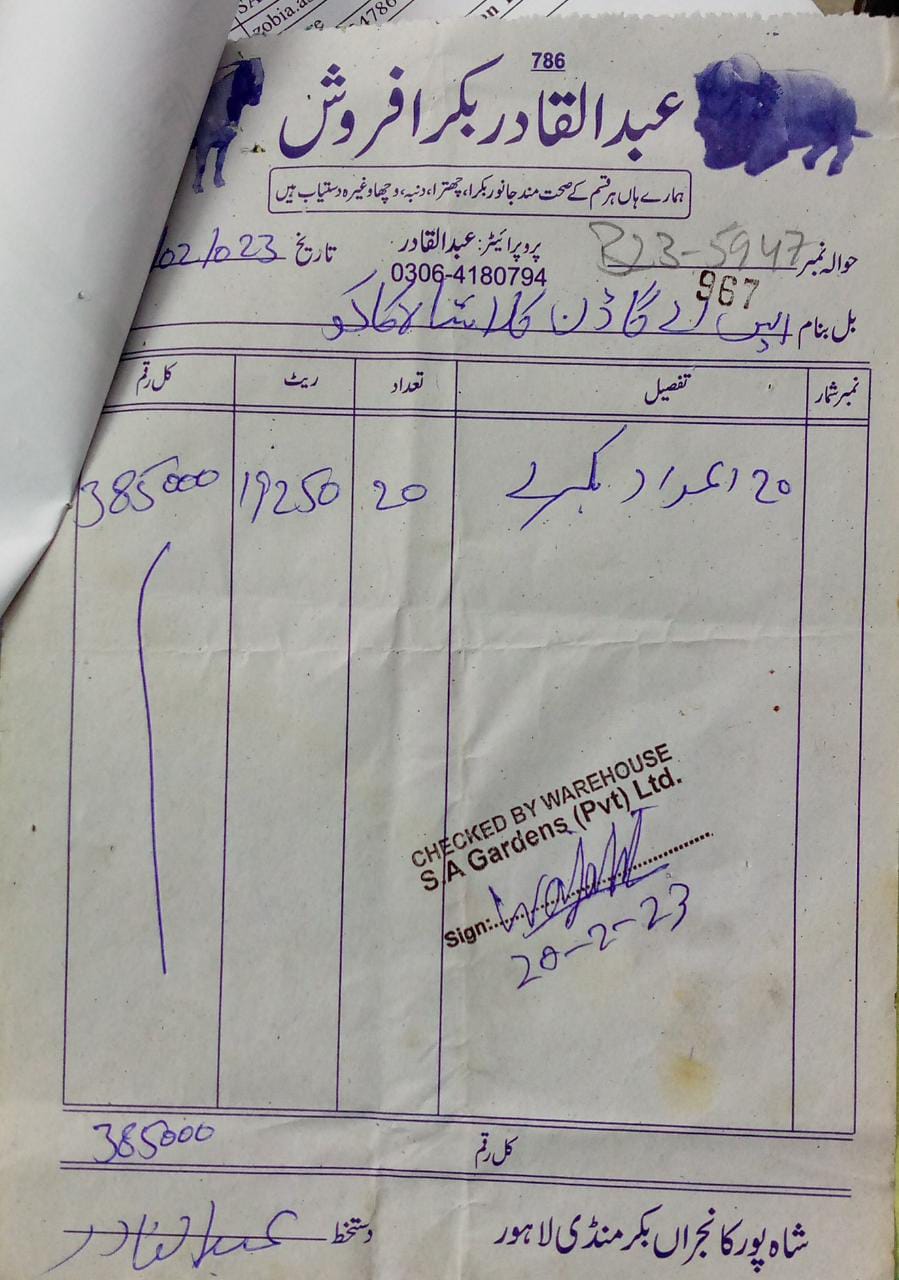 zobia.a
4786
786
عبدالقادر بکرا فروش
ہمارے ہاں ہر قسم کے صحت مند جانور بکرا، چھترا، دنبہ، وچھا وغیرہ دستیاب ہیں
حوالہ نمبر B23-5947 پروپرائیٹر: عبدالقادر تاریخ /02/023
0306-4180794
967
بل بنام ایس اے گاڈن کالا شاہ کاکو
نمبر شمار تفصیل تعداد ریٹ کل رقم
20 اعداد بکرے 20 19250 385000
CHECKED BY WAREHOUSE
S.A Gardens (Pvt) Ltd.
Sign:
20-2-23
کل رقم 385000
شاہ پور کانجراں بکر منڈی لاہور دستخط عبدالقادر